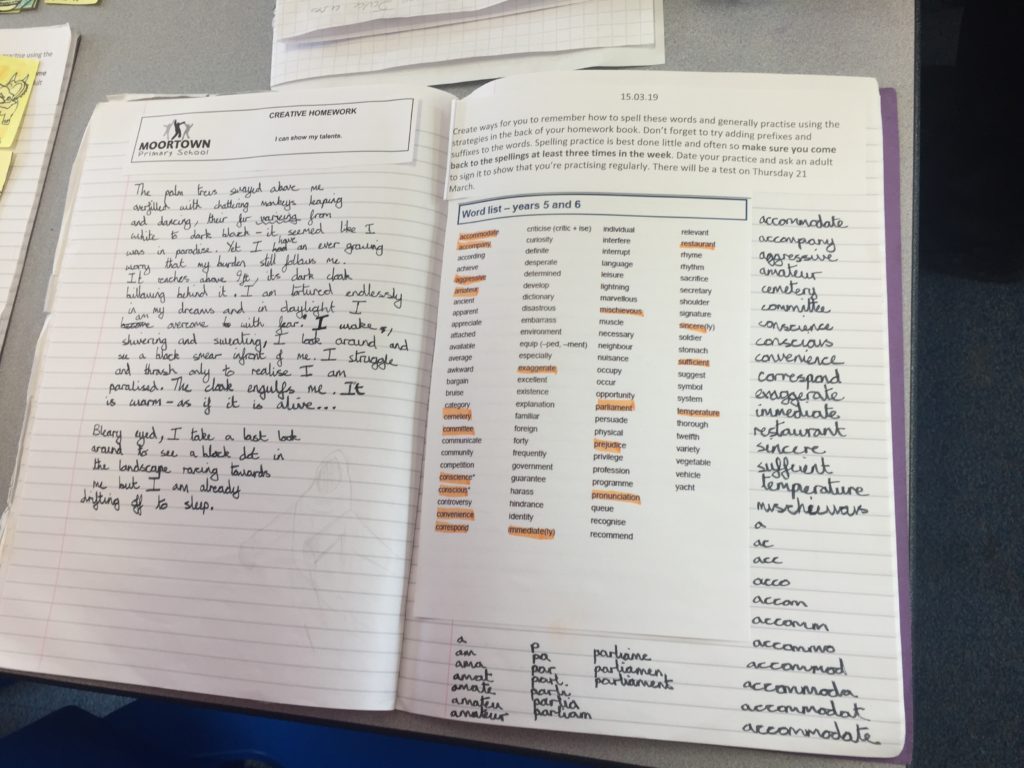 CREATIVE HOMEWORK
I can show my talents.
MOORTOWN
Primary School
The palm trees swayed above me
overfilled with chattering monkeys leaping
and dancing, their fur varying from
white to dark black - it seemed like I
was in paradise. Yet I have an ever growing
worry that my burden still follows me.
It reaches above 9ft, its dark cloak
billowing behind it. I am tortured endlessly
in my dreams and in daylight I
am overcome with fear. I wake,
shivering and sweating, I look around and
see a black smear infront of me. I struggle
and thrash only to realise I am
paralised. The cloak engulfs me. It
is warm - as if it is alive...
Bleary eyed, I take a last look
around to see a black dot in
the landscape racing towards
me but I am already
drifting off to sleep.
15.03.19
Create ways for you to remember how to spell these words and generally practise using the
strategies in the back of your homework book. Don't forget to try adding prefixes and
suffixes to the words. Spelling practice is best done little and often so make sure you come
back to the spellings at least three times in the week. Date your practice and ask an adult
to sign it to show that you're practising regularly. There will be a test on Thursday 21
March.
Word list – years 5 and 6
accommodate
accompany
according
achieve
aggressive
amateur
ancient
apparent
appreciate
attached
available
average
awkward
bargain
bruise
category
cemetery
committee
communicate
community
competition
conscience*
conscious*
controversy
convenience
correspond
criticise (critic + ise)
curiosity
definite
desperate
determined
develop
dictionary
disastrous
embarrass
environment
equip (–ped, –ment)
especially
exaggerate
excellent
existence
explanation
familiar
foreign
forty
frequently
government
guarantee
harass
hindrance
identity
immediate(ly)
individual
interfere
interrupt
language
leisure
lightning
marvellous
mischievous
muscle
necessary
neighbour
nuisance
occupy
occur
opportunity
parliament
persuade
physical
prejudice
privilege
profession
programme
pronunciation
queue
recognise
recommend
relevant
restaurant
rhyme
rhythm
sacrifice
secretary
shoulder
signature
sincere(ly)
soldier
stomach
sufficient
suggest
symbol
system
temperature
thorough
twelfth
variety
vegetable
vehicle
yacht
accommodate
accompany
aggressive
amateur
cemetery
committee
conscience
conscious
convenience
correspond
exaggerate
immediate
restaurant
sincere
temperature
a
ac
acc
acco
accom
accomm
accommo
accommod
accommoda
accommodat
accommodate
a
am
ama
amat
amate
amateu
amateur
p
pa
par
parl
parli
parlia
parliam
parliame
parliament
parliaments